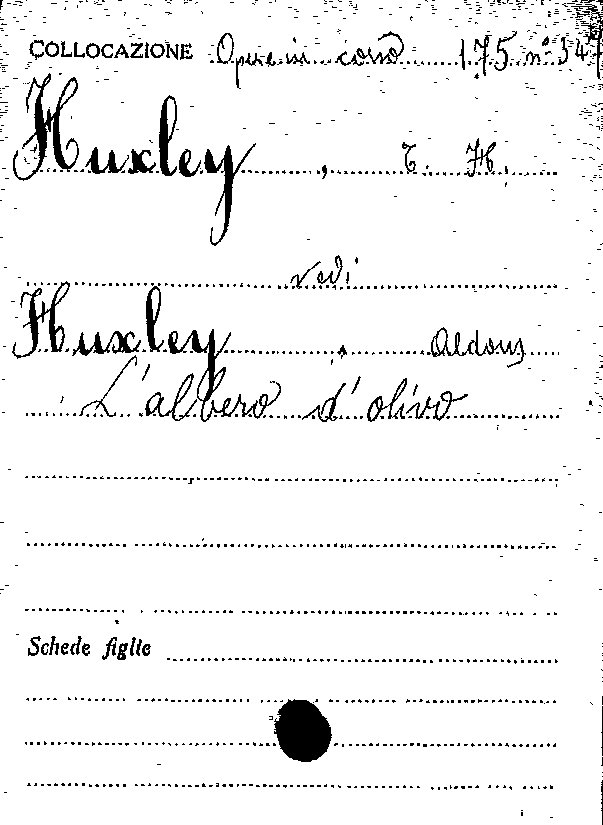 COLLOCAZIONE Opere in corso 175 n° 347
Huxley, T. H.
vedi
Huxley, Aldous
L'albero d'olivo
Schede figlie